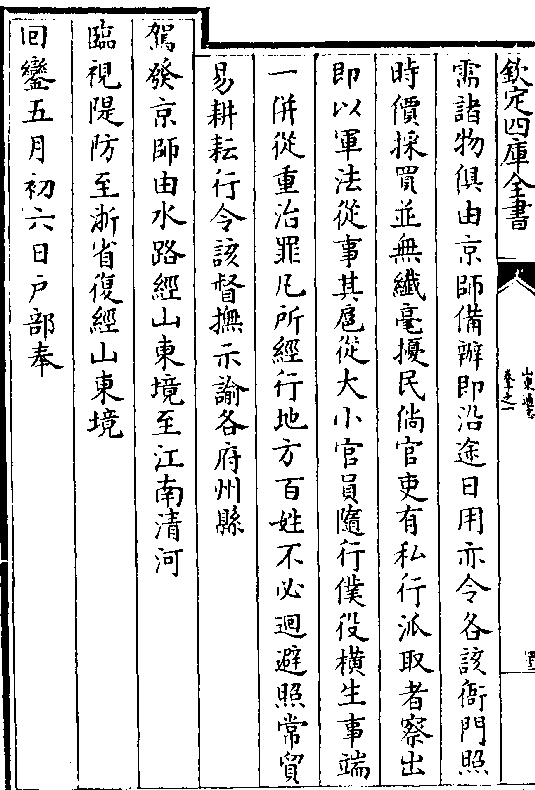 欽定四庫全書
山東通志
卷之一
需諸物俱由京師備辦即沿途日用亦令各該衙門照
時價採買並無纖毫擾民倘官吏有私行派取者察出
即以軍法從事其扈從大小官員隨行僕役橫生事端
一併從重治罪凡所經行地方百姓不必迴避照常貿
易耕耘行令該督撫示諭各府州縣
駕發京師由水路經山東境至江南清河
臨視隄防至浙省復經山東境
回鑾五月初六日戶部奉